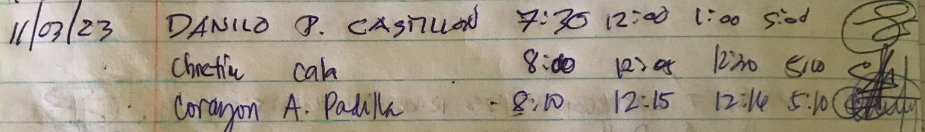 11/03/23 DANILO P. CASTILLON 7:30 12:00 1:00 5:00
Cala 8:00 12:05 5:10
Corazon A. Padilla 8:10 12:15 12:16 5:10